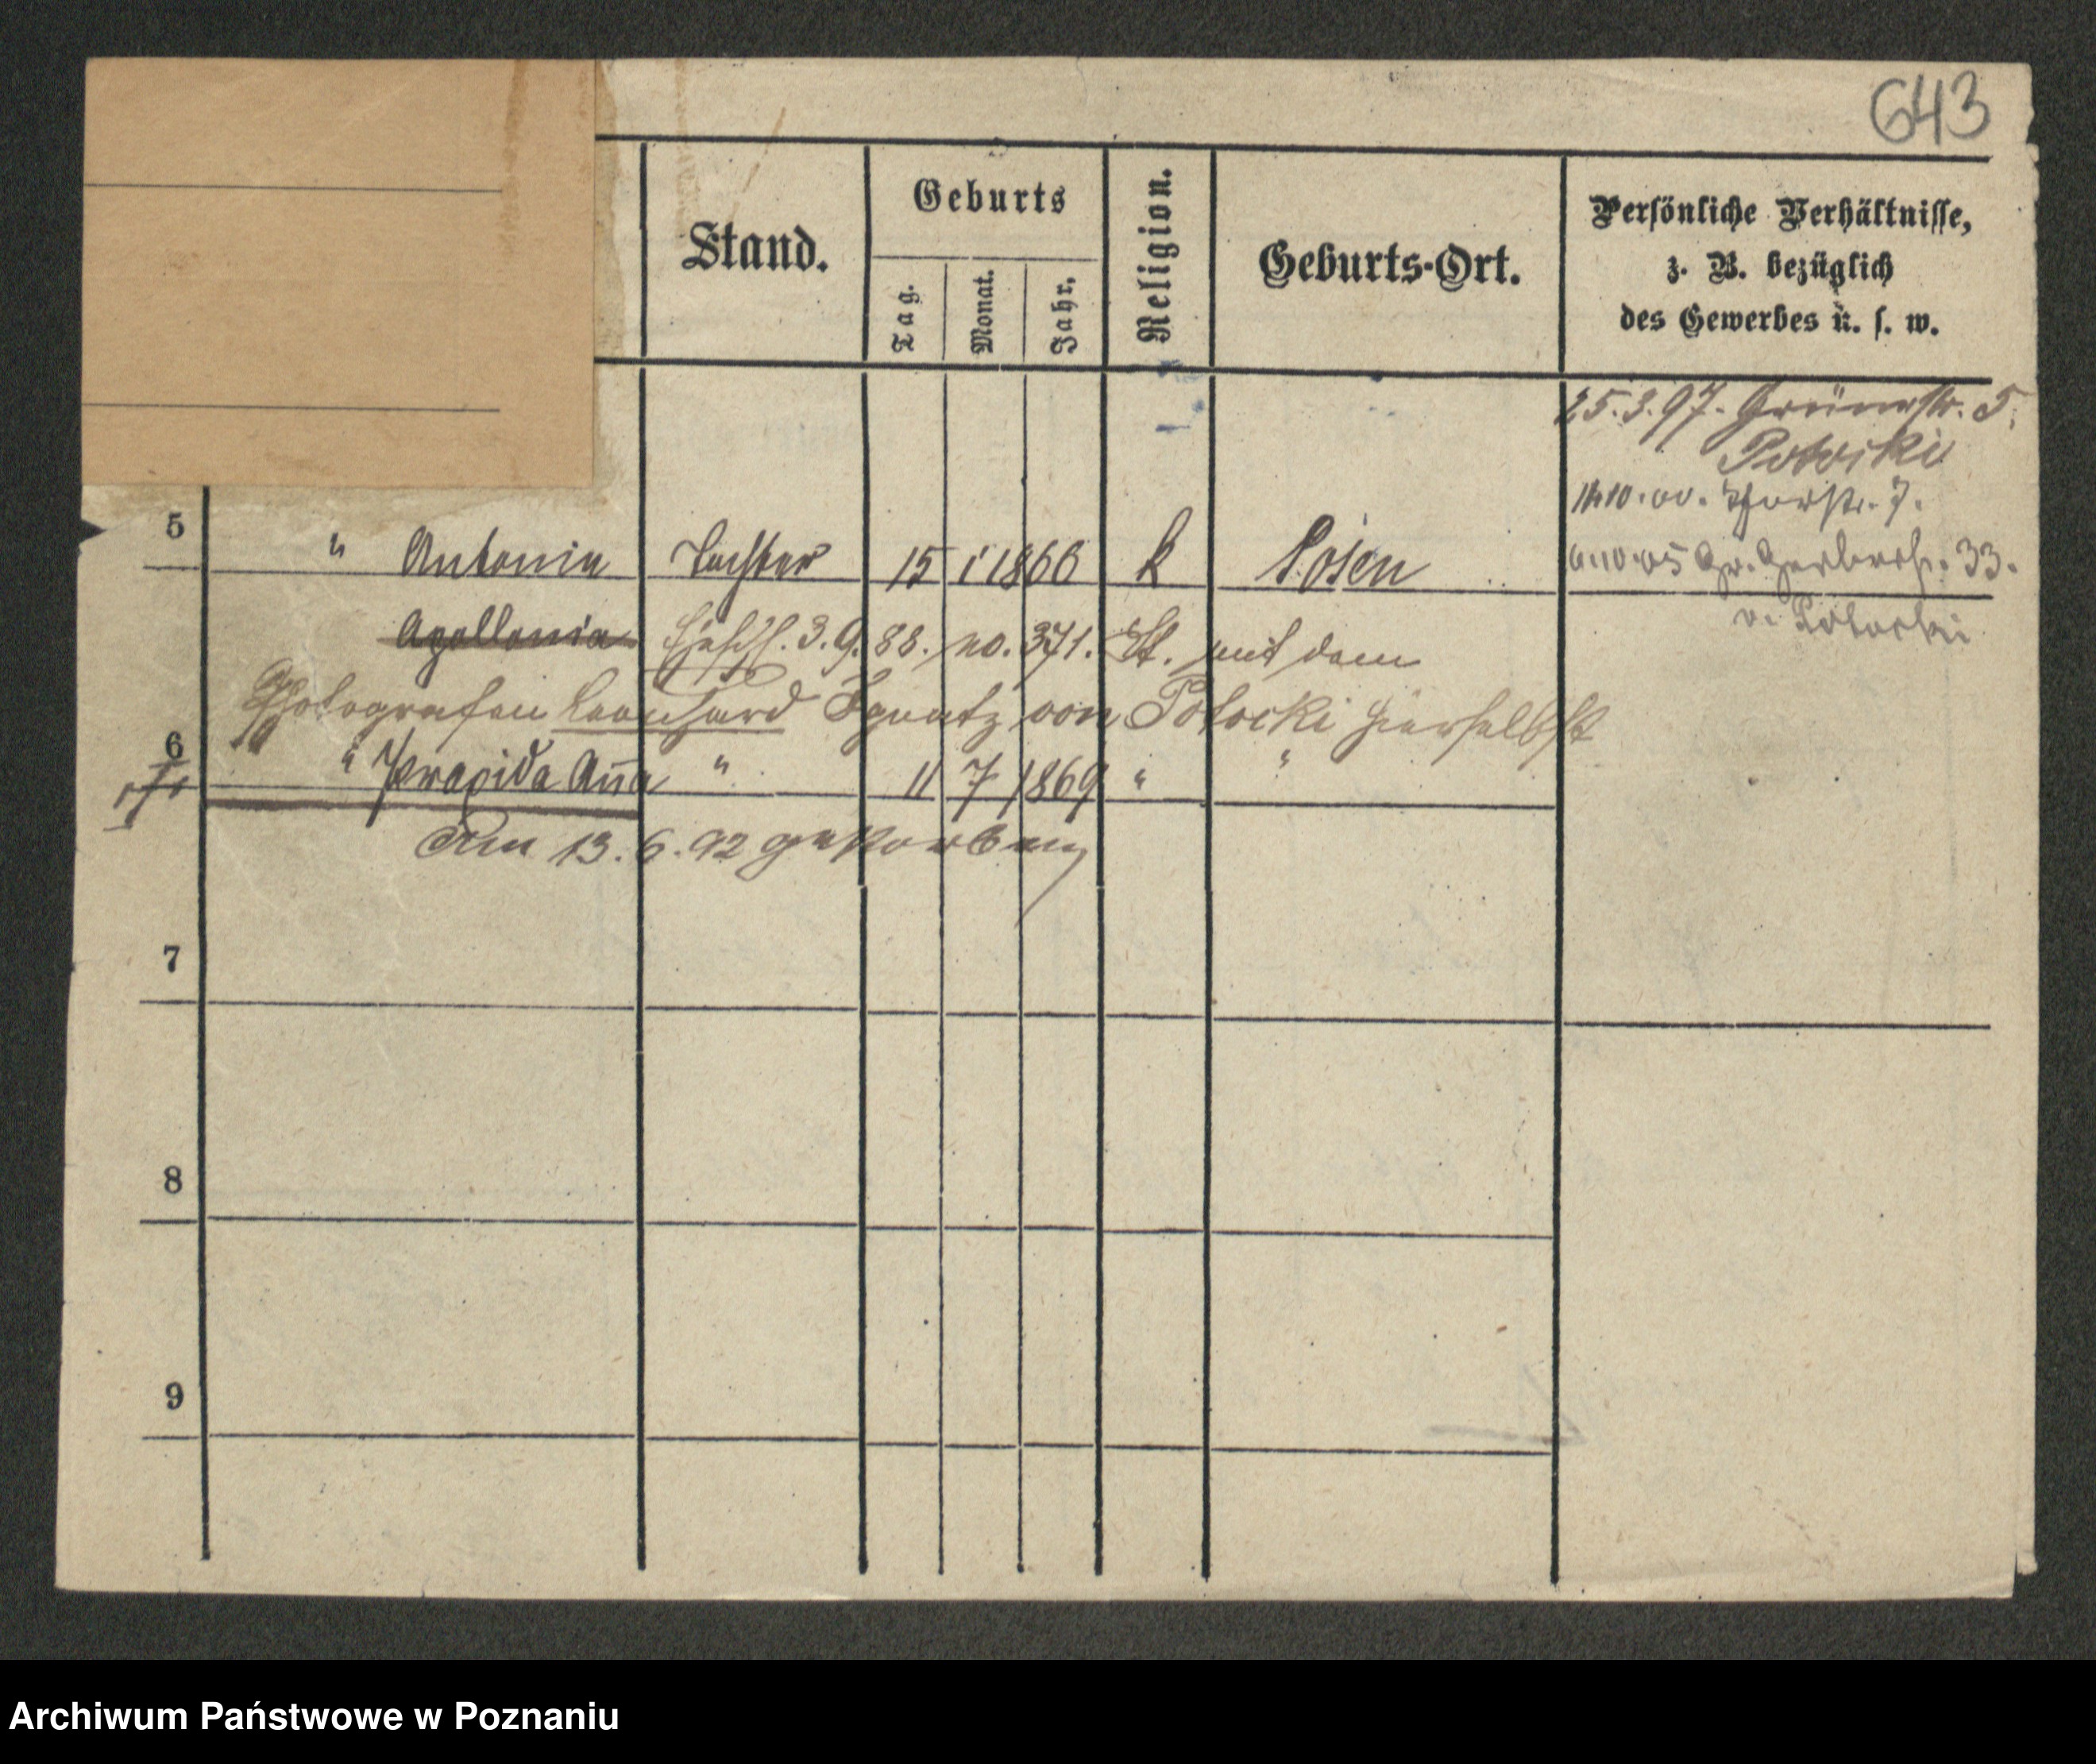 643
Stand.
Geburts
Tag.
Monat.
Jahr.
Religion.
Geburts-Ort.
Persönliche Verhältnisse,
z. B. bezüglich
des Gewerbes u. s. w.
25.3.97. Grünestr. 5,
Potocki
5 " Antonia Tochter 15 1 1866 k Posen
10.00. 7.
10.05 Gr. Gerberstr. 33.
v. Potocki
Apollonia Eheschl. 3.9.88. no. 371. St. mit dem
Photografen Leonhard Ignatz von Potocki hierselbst
6 " Praxida Anna " 11 7 1869 " "
Am 13.6.92 gestorben
7
8
9
Archiwum Państwowe w Poznaniu